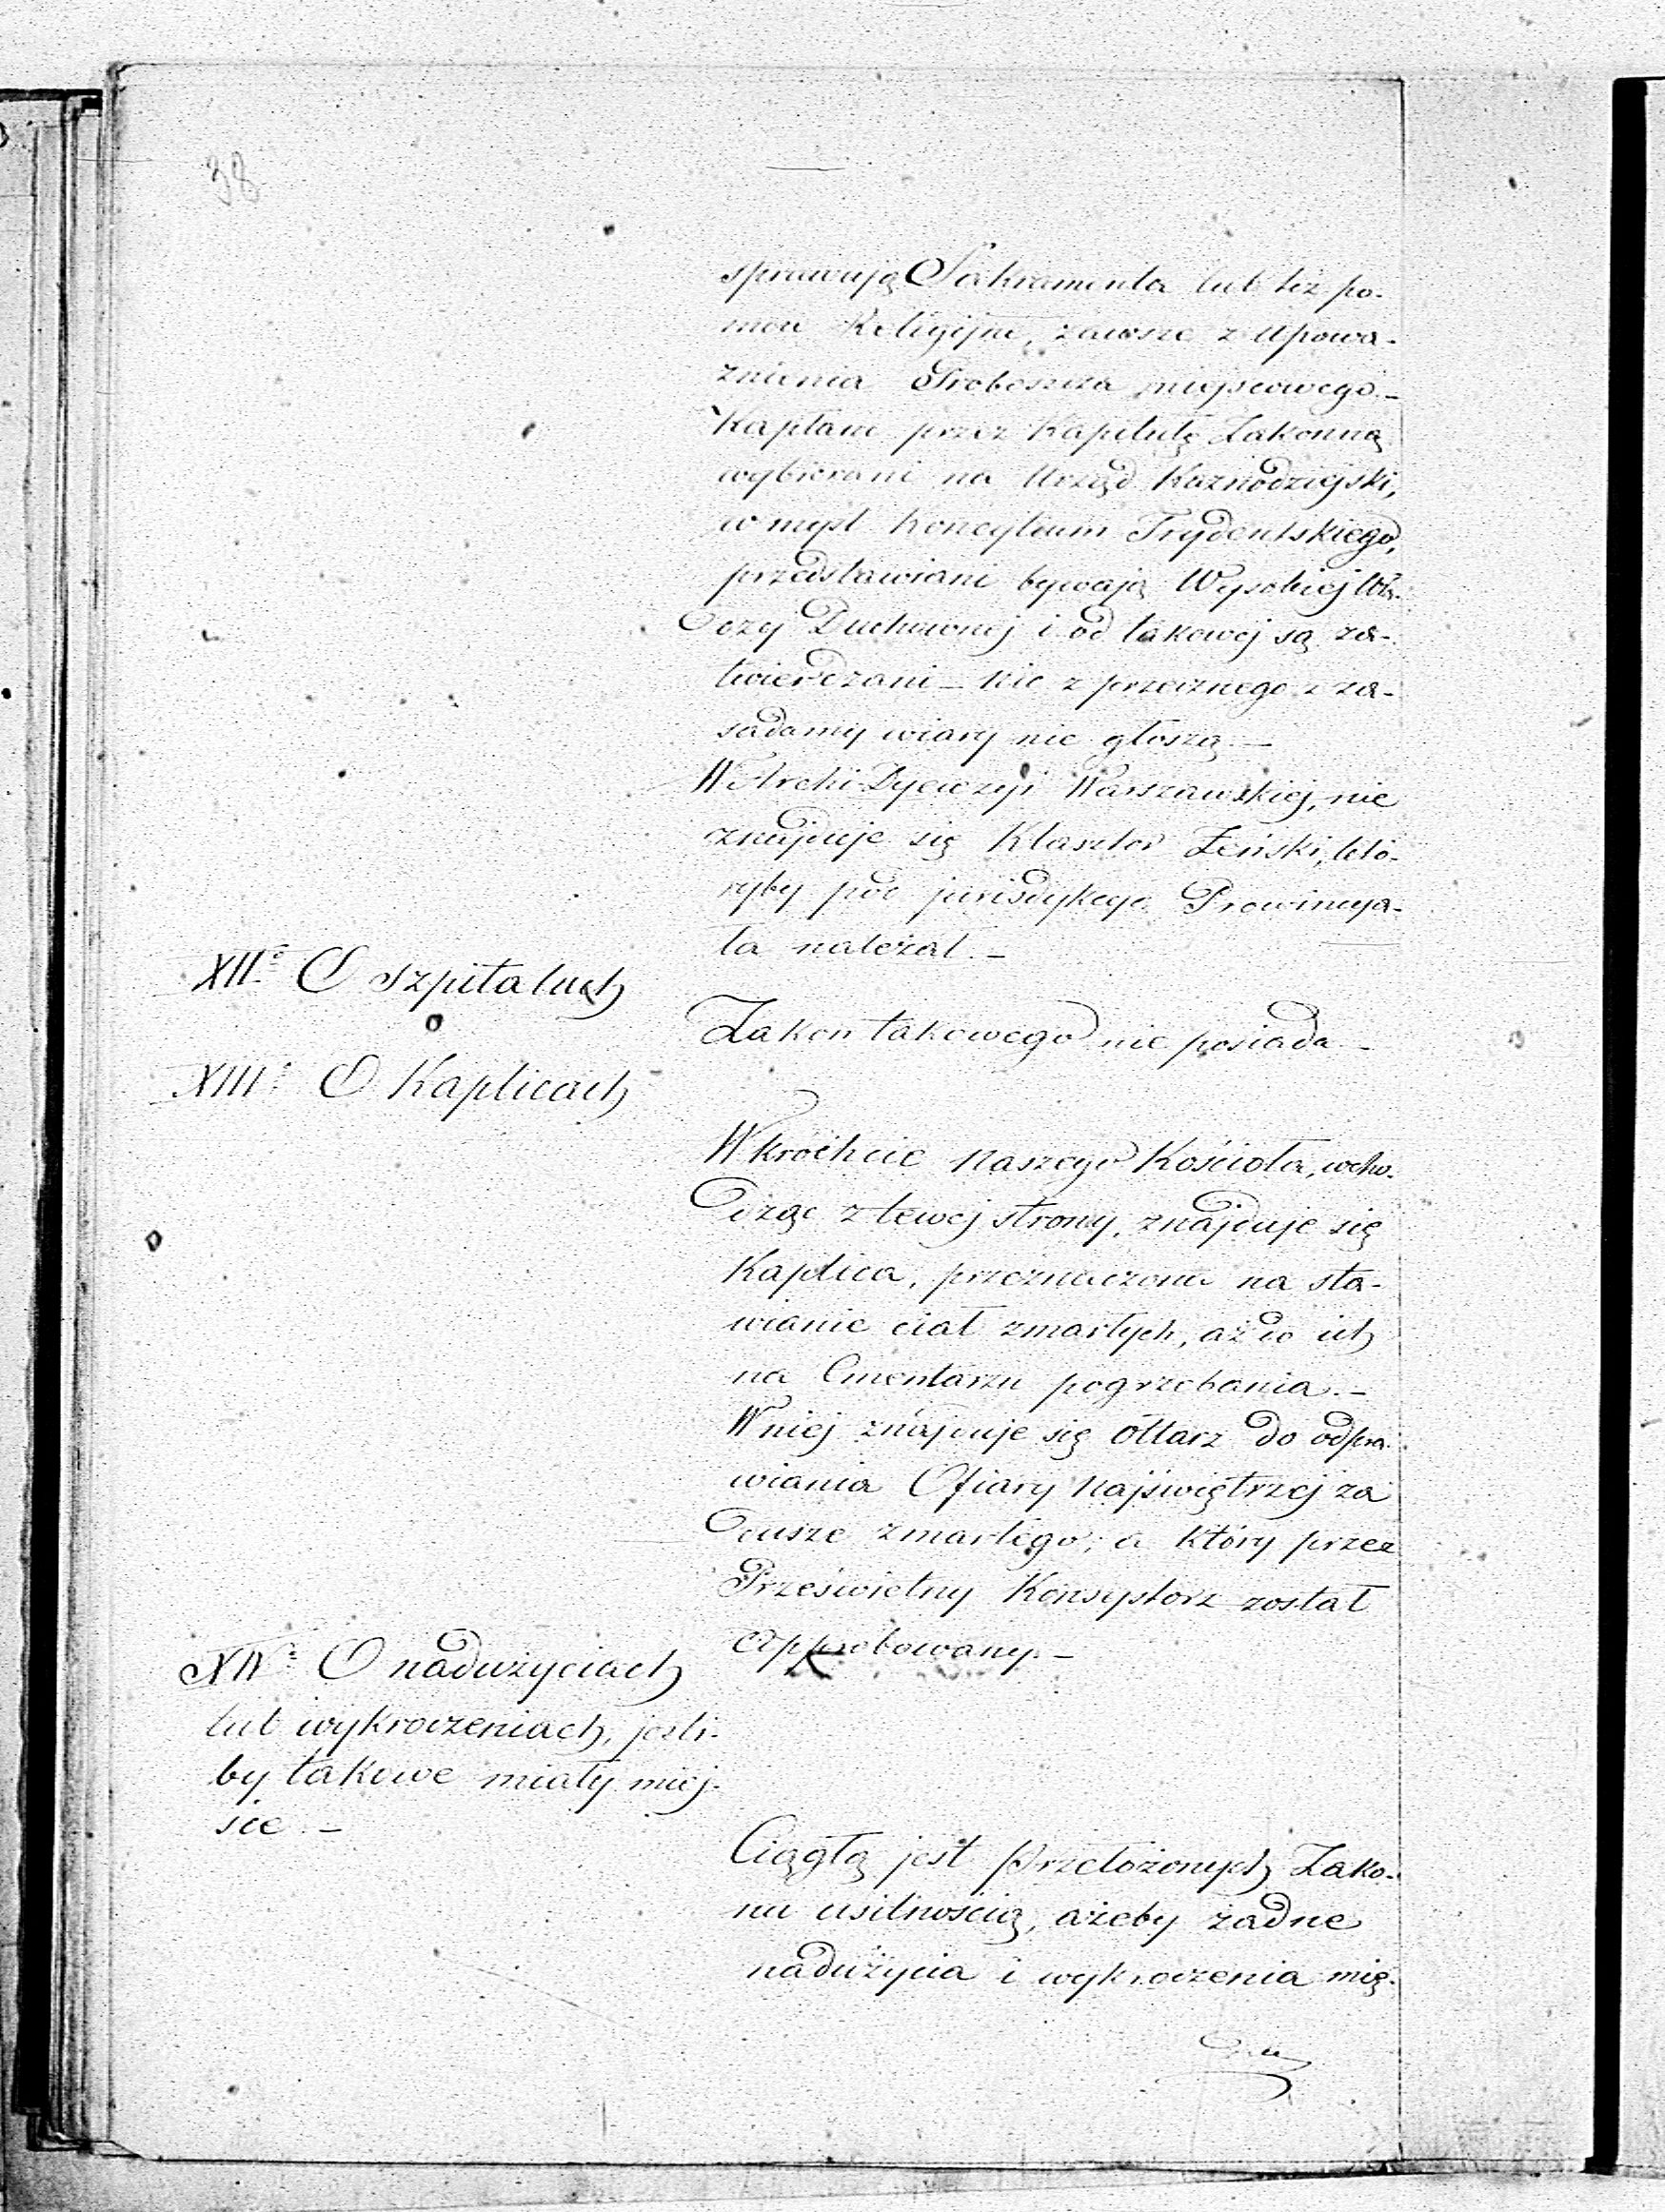 38
sprawują Sakramenta lub też po-
moce Religijne, zawsze z Upowa-
żnienia Proboszcza miejscowego.-
Kapłani przez Kapitułę Zakonną
wybierani na Urząd Kaznodziejski,
w myśl Koncylium Trydentskiego,
przedstawiani bywają Wysokiej Wła-
dzy Duchownej i od takowej są za-
twierdzani - nic z przecznego z za-
sadamy wiary nie głoszą. -
W Archi-Dyecezyi Warszawskiej, nie
znajduje się Klasztor Żeński, któ-
ryby pod jurisdykcyę Prowincya-
ła należał. -
XIIe O Szpitalach
Zakon takowego nie posiada -
XIIIe O Kaplicach
W krochcie naszego Kościoła, wcho-
dząc z lewej strony, znajduje się
Kaplica, przeznaczona na sta-
wianie ciał zmarłych, aż do ich
na Cmentarzu pogrzebania. -
W niej znajduje się ołtarz do odpra-
wiania Ofiary Najświętrzej za
duszę zmarłego; a który przez
Prześwietny Konsystorz został
Approbowany. -
XIVe O nadużyciach
lub wykroczeniach, jeśli-
by takowe miały miej-
sce. -
Ciągłą jest Przełożonych Zako-
nu usilnością, ażeby żadne
nadużycia i wykroczenia mię-